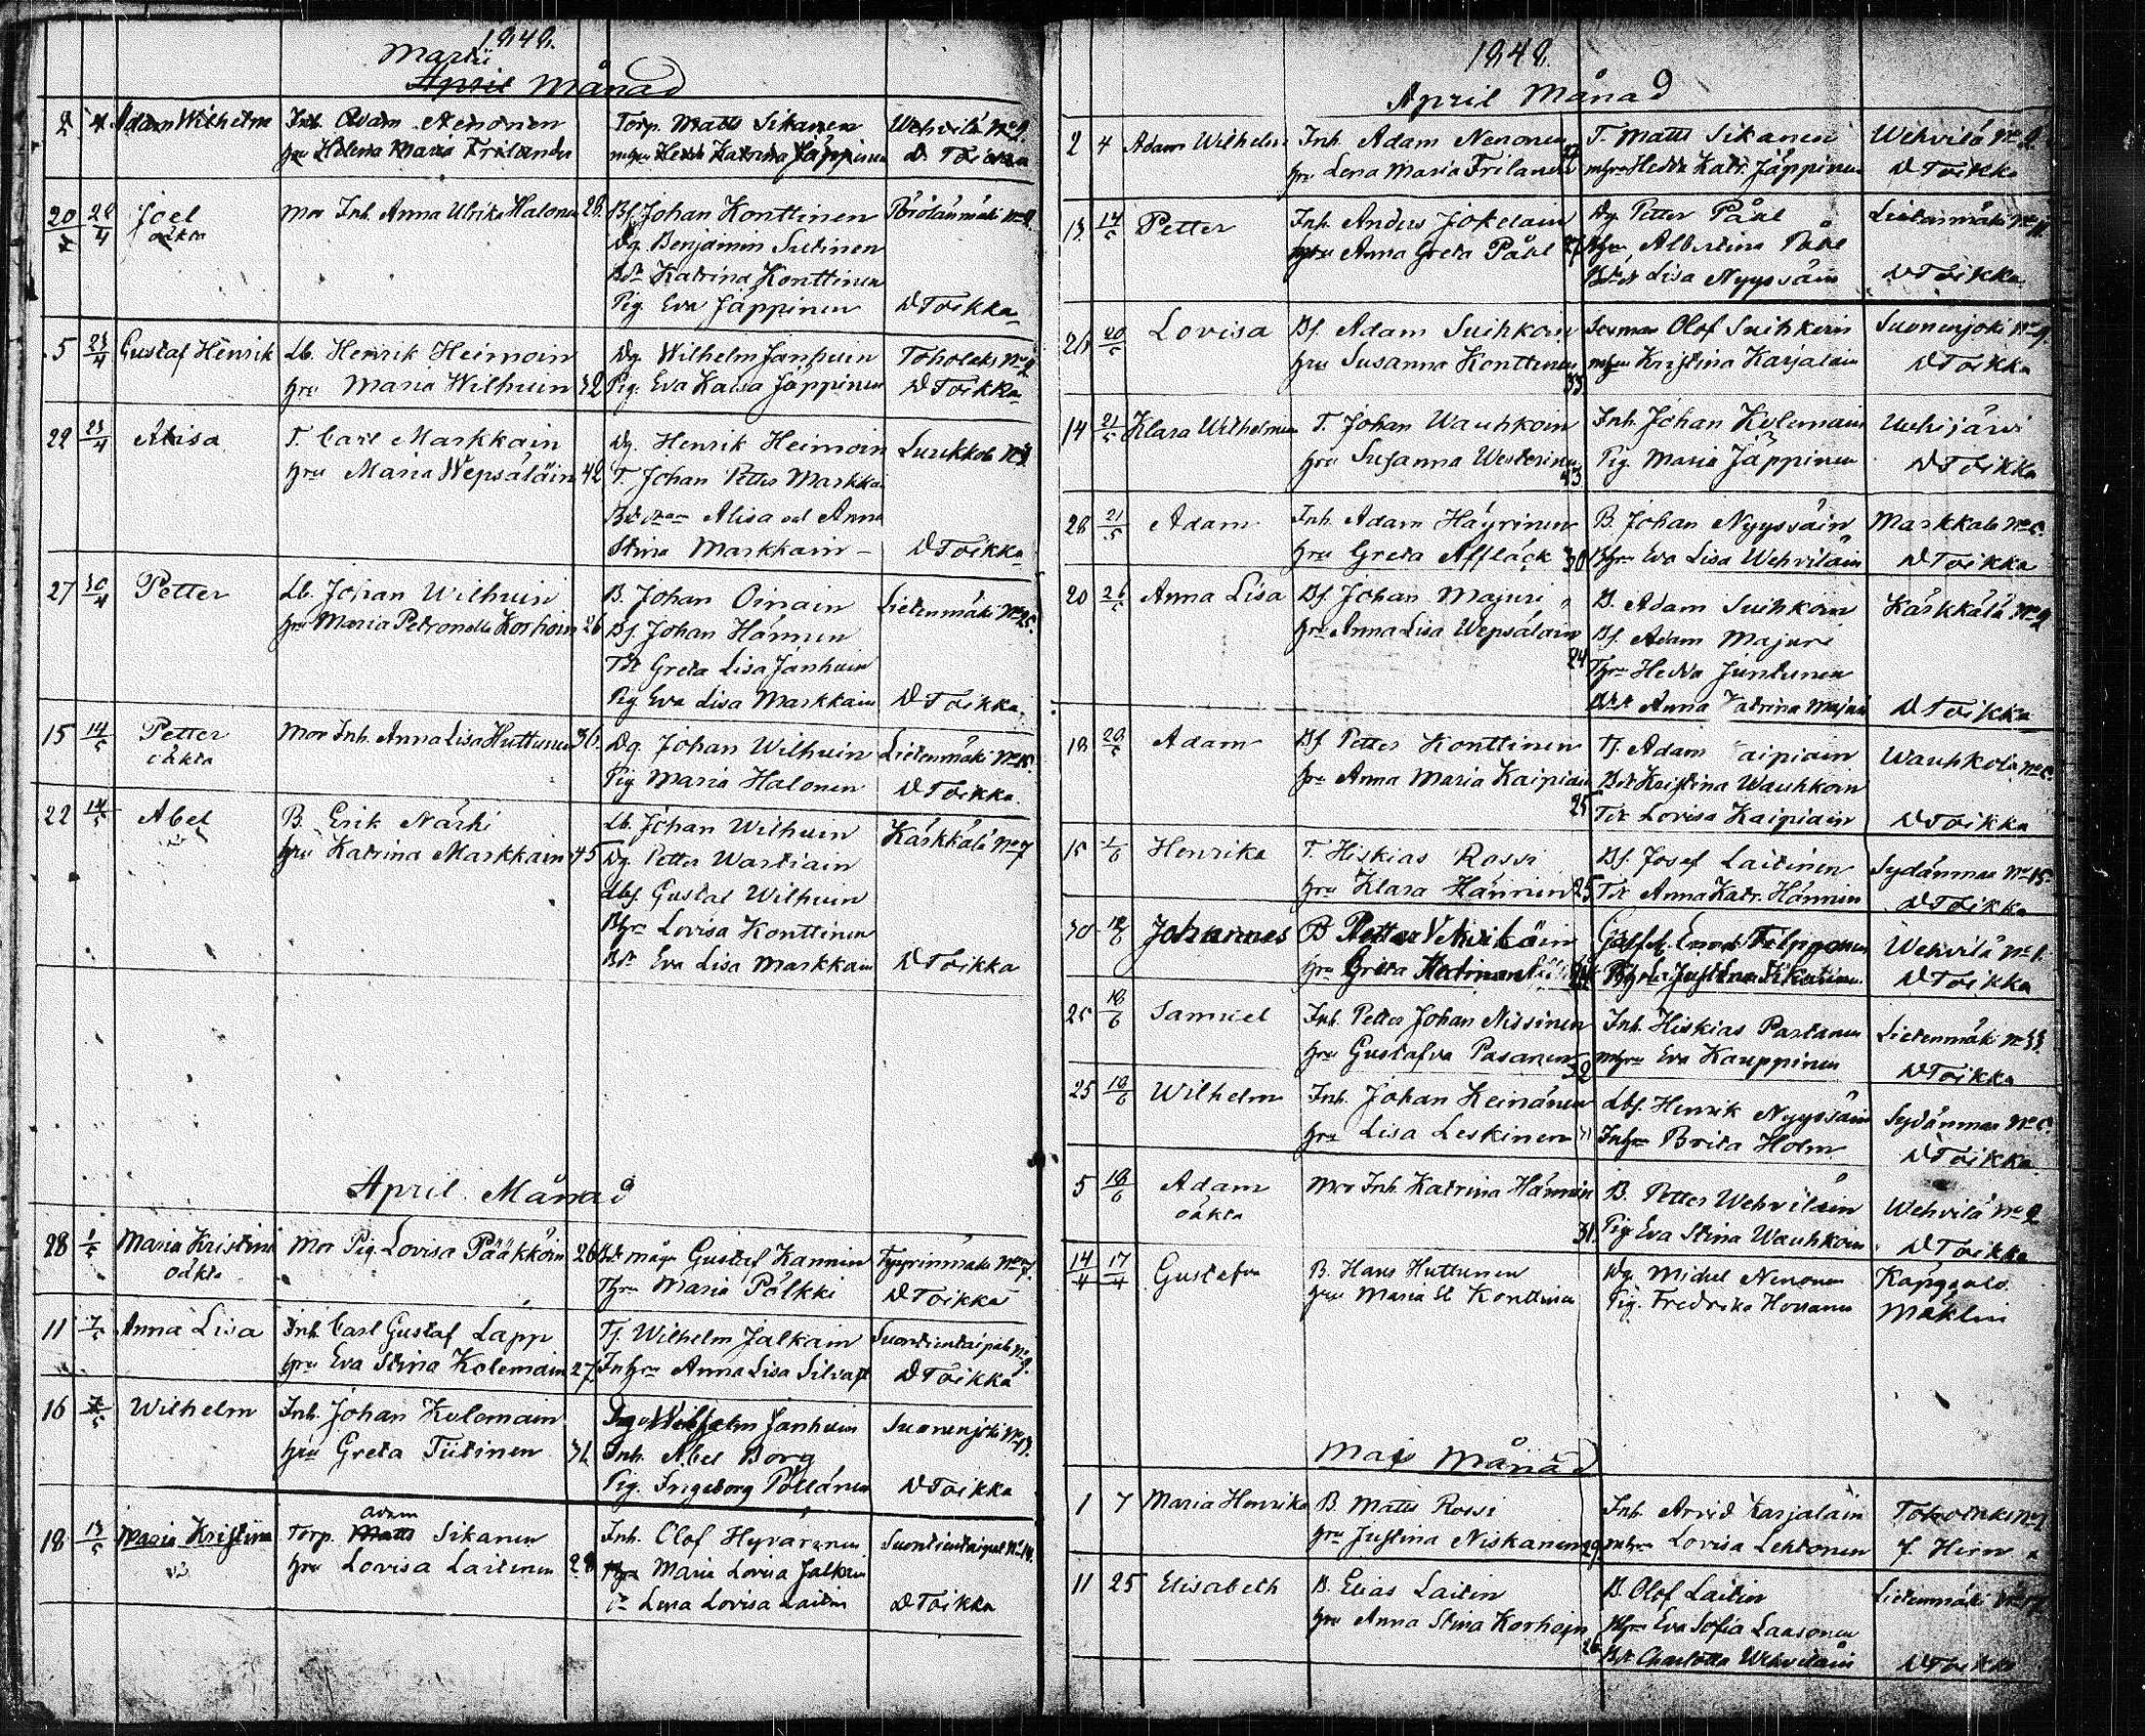 1848.
Martii
April Månad
2 4 Adam Wilhelm Inh. Adam Nenonen Torp. Matts Sikanen Wehvilä No 2.
hru Helena Maria Frilander mhru Hedda Katrina Jäppinen D Toikka
20/3 24/4 Joel mor Inh. Anna Ulrika Halonen 28. Bf. Johan Konttinen Pörölänmäki No 2.
oäkta Dg. Benjamin Sutinen
Bdr Katrina Konttinen
Pig. Eva Jäppinen D Toikka
5 23/4 Gustaf Henrik Lb. Henrik Heimoin Dg. Wilhelm Janhuin Toholaks No 2
hru Maria Wilhuin 32 Pig. Eva Kaisa Jäppinen D Toikka
22 23/4 Alisa T. Carl Markkain Dg. Henrik Heimoin Luukkola No 3.
hru Maria Wepsäläin 42 T. Johan Petter Markkai
Alisa och Anna
Stina Markkain D Toikka
27 30/4 Petter Lb. Johan Wilhuin B. Johan Oinain Lietenmäki No 25.
hru Maria Petronella Korhoin 26 Bf. Johan Hännin
Tdr Greta Lisa Janhuin
Pig Eva Lisa Markkain D Toikka
15 14/5 Petter mor Inh. Anna Lisa Huttunen 36. Dg. Johan Wilhuin Lietenmäki No 15.
oäkta Pig Maria Halonen D Toikka
22 14/5 Abel B. Erik Närhi Lb. Johan Wilhuin Kärkkälä No 7
hru Katrina Markkain 45 Dg. Petter Wartiain
Lbf. Gustaf Wilhuin
Bhru Lovisa Konttinen
Bdr Eva Lisa Markkain D Toikka
April Månad
28 1/5 Maria Kristina Mor Pig. Lovisa Pääkköin 26 måg Gustaf Kannin Tyyrinmäki No 7.
oäkta Thru Maria Pölkki D Toikka
11 7/5 Anna Lisa Inh. Carl Gustaf Lapp Tf. Wilhelm Jalkain Suontientaipale No 9.
hru Eva Stina Kolemain 27. Inhru Anna Lisa Silvast D Toikka
16 7/5 Wilhelm Inh. Johan Kolemain Dg Wilhelm Janhuin Suonenjoki No 17.
hru Greta Tiitinen 31 Inh. Abel Borg
Pig. Ingeborg Pöllänen D Toikka
18 13/5 Maria Kristina Torp. Matts Adam Sikanen Inh. Olof Hyvärinen Suontientaipal No 14.
hru Lovisa Laitinen 28 hru Maria Lovisa Jalkain
Lena Lovisa Laitin D Toikka
1848.
April Månad
2 4 Adam Wilhelm Inh. Adam Nenonen T. Matts Sikanen Wehvilä No 2.
hru Lena Maria Frilander mhru Hedda Katr. Jäppinen D Toikka
13 14/5 Petter Inh. Anders Jokelain Dg. Petter Pååhl Lietenmäki No 11.
hru Anna Greta Påhl 27 Bhru Albertina Påhl
Lisa Nyyssäin D Toikka
21 20/5 Lovisa Bf. Adam Suihkoin Sexman Olof Suihkoin Suonenjoki No 9.
hru Susanna Konttinen 33 mhru Kristina Karjalain D Toikka
14 21/5 Klara Wilhelmina T. Johan Wauhkoin Inh. Johan Kolemain Uuhijärvi
hru Susanna Westerinen 43 Pig. Maria Jäppinen D Toikka
28 21/5 Adam Inh. Adam Häyrinen B. Johan Nyyssäin Markkala No 5.
hru Greta Affläck 30 Bhru Eva Lisa Wehviläin D Toikka
20 26/5 Anna Lisa Bf. Johan Majuri B. Adam Suihkoin Kärkkälä No 2
hru Anna Lisa Wepsäläin 24 Bf. Adam Majuri
Thru Hedda Juntunen
Anna Katrina Majuri D Toikka
18 28/5 Adam Bf Petter Konttinen Tf. Adam Kaipiain Wauhkola No 5.
hru Anna Maria Kaipiain 25 Bdr Kristina Wauhkoin
Tdr Lovisa Kaipiain D Toikka
15 1/6 Henrika T. Hiskias Rossi Bf. Josef Laitinen Sydänmaa No 15.
hru Klara Hännin 25 Tdr Anna Katr. Hännin D Toikka
30 12/6 Johannes B Petter Wehviläin Filppunen Wehvilä No 1.
hru Greta D Toikka
25 18/6 Samuel Inh. Petter Johan Nissinen Inh. Hiskias Partanen Lietenmäki No 33.
hru Gustafva Pasanen 32 mhru Eva Kauppinen D Toikka
25 18/6 Wilhelm Inh. Johan Keinänen Lbf. Henrik Nyyssäin Sydänmaa No 5.
hru Lisa Leskinen 31 Inhru Brita Holm D Toikka
5 18/6 Adam Mor Inh. Katrina Hännin B. Petter Wehviläin Wehvilä No 2
oäkta 31. Pig Eva Stina Wauhkoin D Toikka
14/4 17/4 Gustafva B. Hans Huttunen Dg. Michel Nenonen
hru Maria St Konttinen Pig. Fredrika Mäklin
Maji Månad
1 7 Maria Henrika B. Matts Rossi Inh. Arvid Karjalain Toholaks No 1
hru Justina Niskanen 29 mhru Lovisa Lehtonen J. Hirn
11 25 Elisabeth B. Elias Laitin B. Olof Laitin Lietenmäki No 17
hru Anna Stina Korhoin Bhru Eva Sofia Laasonen
26 Bdr Charlotta Wehviläin D Toikka